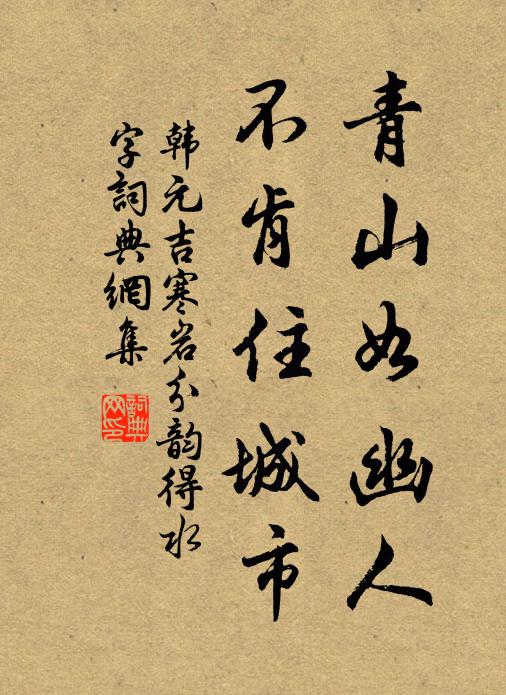 青山如幽人
不肯住城市
韩元吉寒岩分韵得水
字詞典網集
詞典
网印